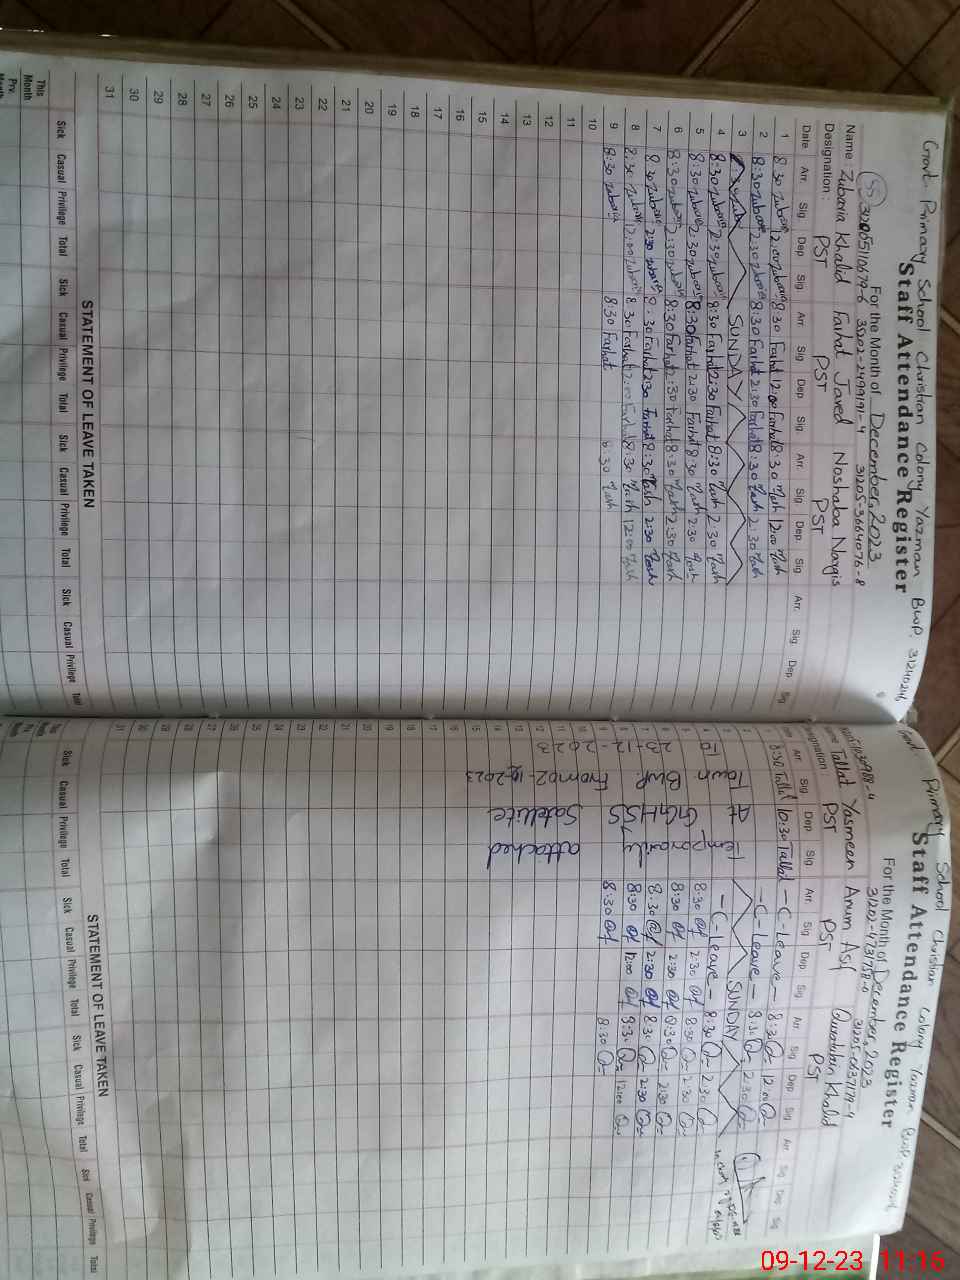 Govt. Primary School Christian Colony Yazman BWP. 31240246
Staff Attendance Register
For the Month of December, 2023
31205-3664076-8
Name: Zubaria Khalid Farhat Javed Noshaba Nargis
Designation: PST PST PST
Date Arr. Sig Dep Sig Arr. Sig Dep Sig Arr. Sig Dep. Sig Arr. Sig Dep Sig
1 8:30 Zubaria 12:00 Zubaria 8:30 Farhat 12:00 Farhat 8:30 Nosh 12:00 Nosh
2 8:30 Zubaria 2:30 Zubaria 8:30 Farhat 2:30 Farhat 8:30 Nosh 2:30 Nosh
3 SUNDAY
4 8:30 Zubaria 2:30 Zubaria 8:30 Farhat 2:30 Farhat 8:30 Nosh 2:30 Nosh
5 8:30 Zubaria 2:30 Zubaria 8:30 Farhat 2:30 Farhat 8:30 Nosh 2:30 Nosh
6 8:30 Zubaria 2:30 Zubaria 8:30 Farhat 2:30 Farhat 8:30 Nosh 2:30 Nosh
7 8:30 Zubaria 2:30 Zubaria 8:30 Farhat 2:30 Farhat 8:30 Nosh 2:30 Nosh
8 8:30 Zubaria 12:00 Zubaria 8:30 Farhat 12:00 Farhat 8:30 Nosh 12:00 Nosh
9 8:30 Zubaria 8:30 Farhat 8:30 Nosh
10
11
12
13
14
15
16
17
18
19
20
21
22
23
24
25
26
27
28
29
30
31
STATEMENT OF LEAVE TAKEN
Sick Casual Privilege Total Sick Casual Privilege Total Sick Casual Privilege Total Sick Casual Privilege Total
This Month
Prv. Month
Govt. Primary School Christian Colony Yazman BWP. 31240246
Staff Attendance Register
For the Month of December, 2023
31202-4731758-0 31205-0637179-4
Name Tallat Yasmeen Anum Asif Quratulain Khalid
Designation: PST PST PST
Date Arr. Sig Dep Sig Arr. Sig Dep Sig Arr. Sig Dep Sig Arr Sig Dep Sig
1 8:30 Tallat 10:30 Tallat -C-Leave- 8:30 12:00
2 -C-Leave- 8:30 2:30
3 SUNDAY
4 -C-Leave- 8:30 2:30
5 8:30 2:30 8:30 2:30
6 8:30 2:30 8:30 2:30
7 8:30 2:30 8:30 2:30
8 8:30 12:00 8:30 12:00
9 8:30 8:30
Temporarily attached
At GGHSS Satellite
Town BWP. From 02-12-2023
To 23-12-2023
10
11
12
13
14
15
16
17
18
19
20
21
22
23
24
25
26
27
28
29
30
31
STATEMENT OF LEAVE TAKEN
Sick Casual Privilege Total Sick Casual Privilege Total Sick Casual Privilege Total Sick Casual Privilege Total
09-12-23 11:16